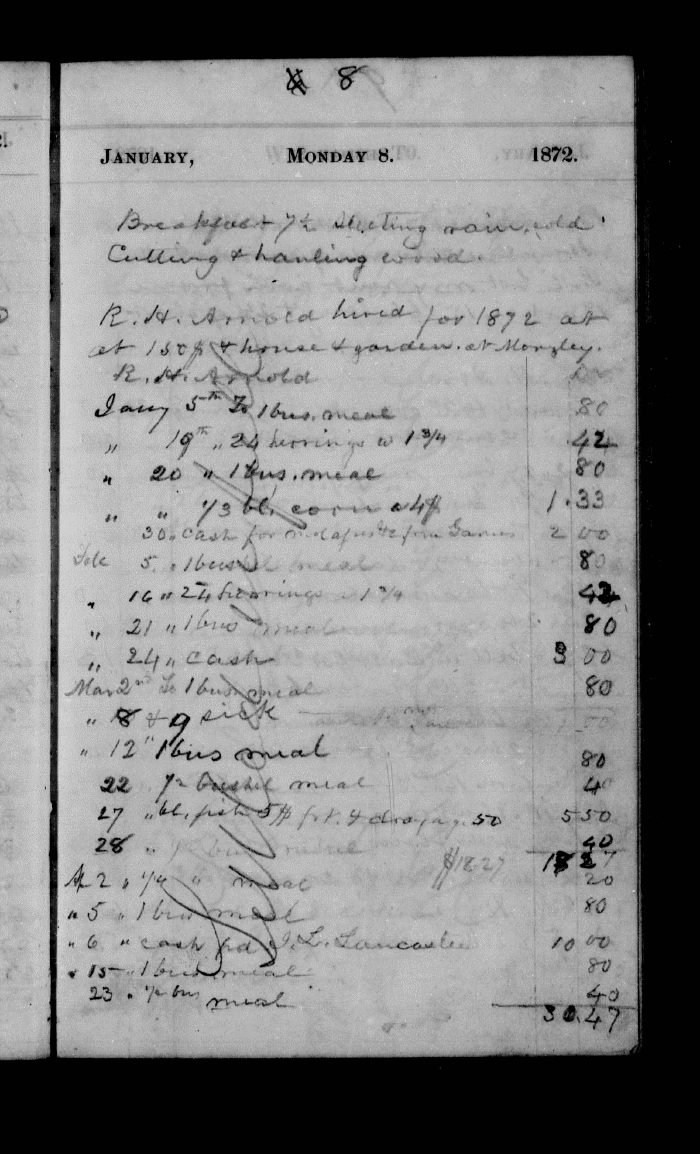 8
JANUARY, MONDAY 8. 1872.
Breakfast 7½ Sleeting rain, cold.
Cutting & hauling wood.
R. H. Arnold hired for 1872 at
at 150$ & house & garden. at Morgley.
R. H. Arnold
Jany 5th To 1 bus. meal 80
" 19th " 24 herrings a 1 3/4 .42
" 20 " 1 bus. meal 80
" " 1/3 bl. corn a 4$ 1.33
30. Cash for from 2 00
Feb 5. " 1 bushel meal 80
" 16 " 24 herrings a 1 3/4 42
" 21 " 1 bus meal 80
" 24 " cash 3 00
Mar 2nd To 1 bus. meal 80
" 8 & 9 sick 1 00
" 12 " 1 bus meal 80
22 ½ bushel meal 40
27 " bl. fish 5$ frt. & drayage .50 5 50
28 " ½ bus meal 40
$18.27 18 27
Ap 2 " 1/4 " meal 20
" 5 " 1 bus meal 80
" 6 " cash pd J. L. Lancaster 10 00
" 15 " 1 bus. meal 80
23 " ½ bus meal 40
30.47